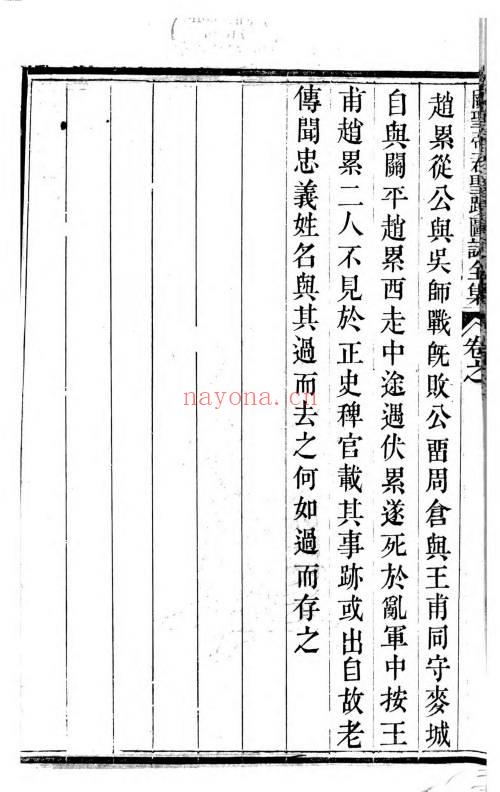 關聖帝君聖蹟圖誌全集 卷之
趙累從公與吳師戰旣敗公畱周倉與王甫同守麥城
自與關平趙累西走中途遇伏累遂死於亂軍中按王
甫趙累二人不見於正史稗官載其事跡或出自故老
傳聞忠義姓名與其過而去之何如過而存之
nayona.cn